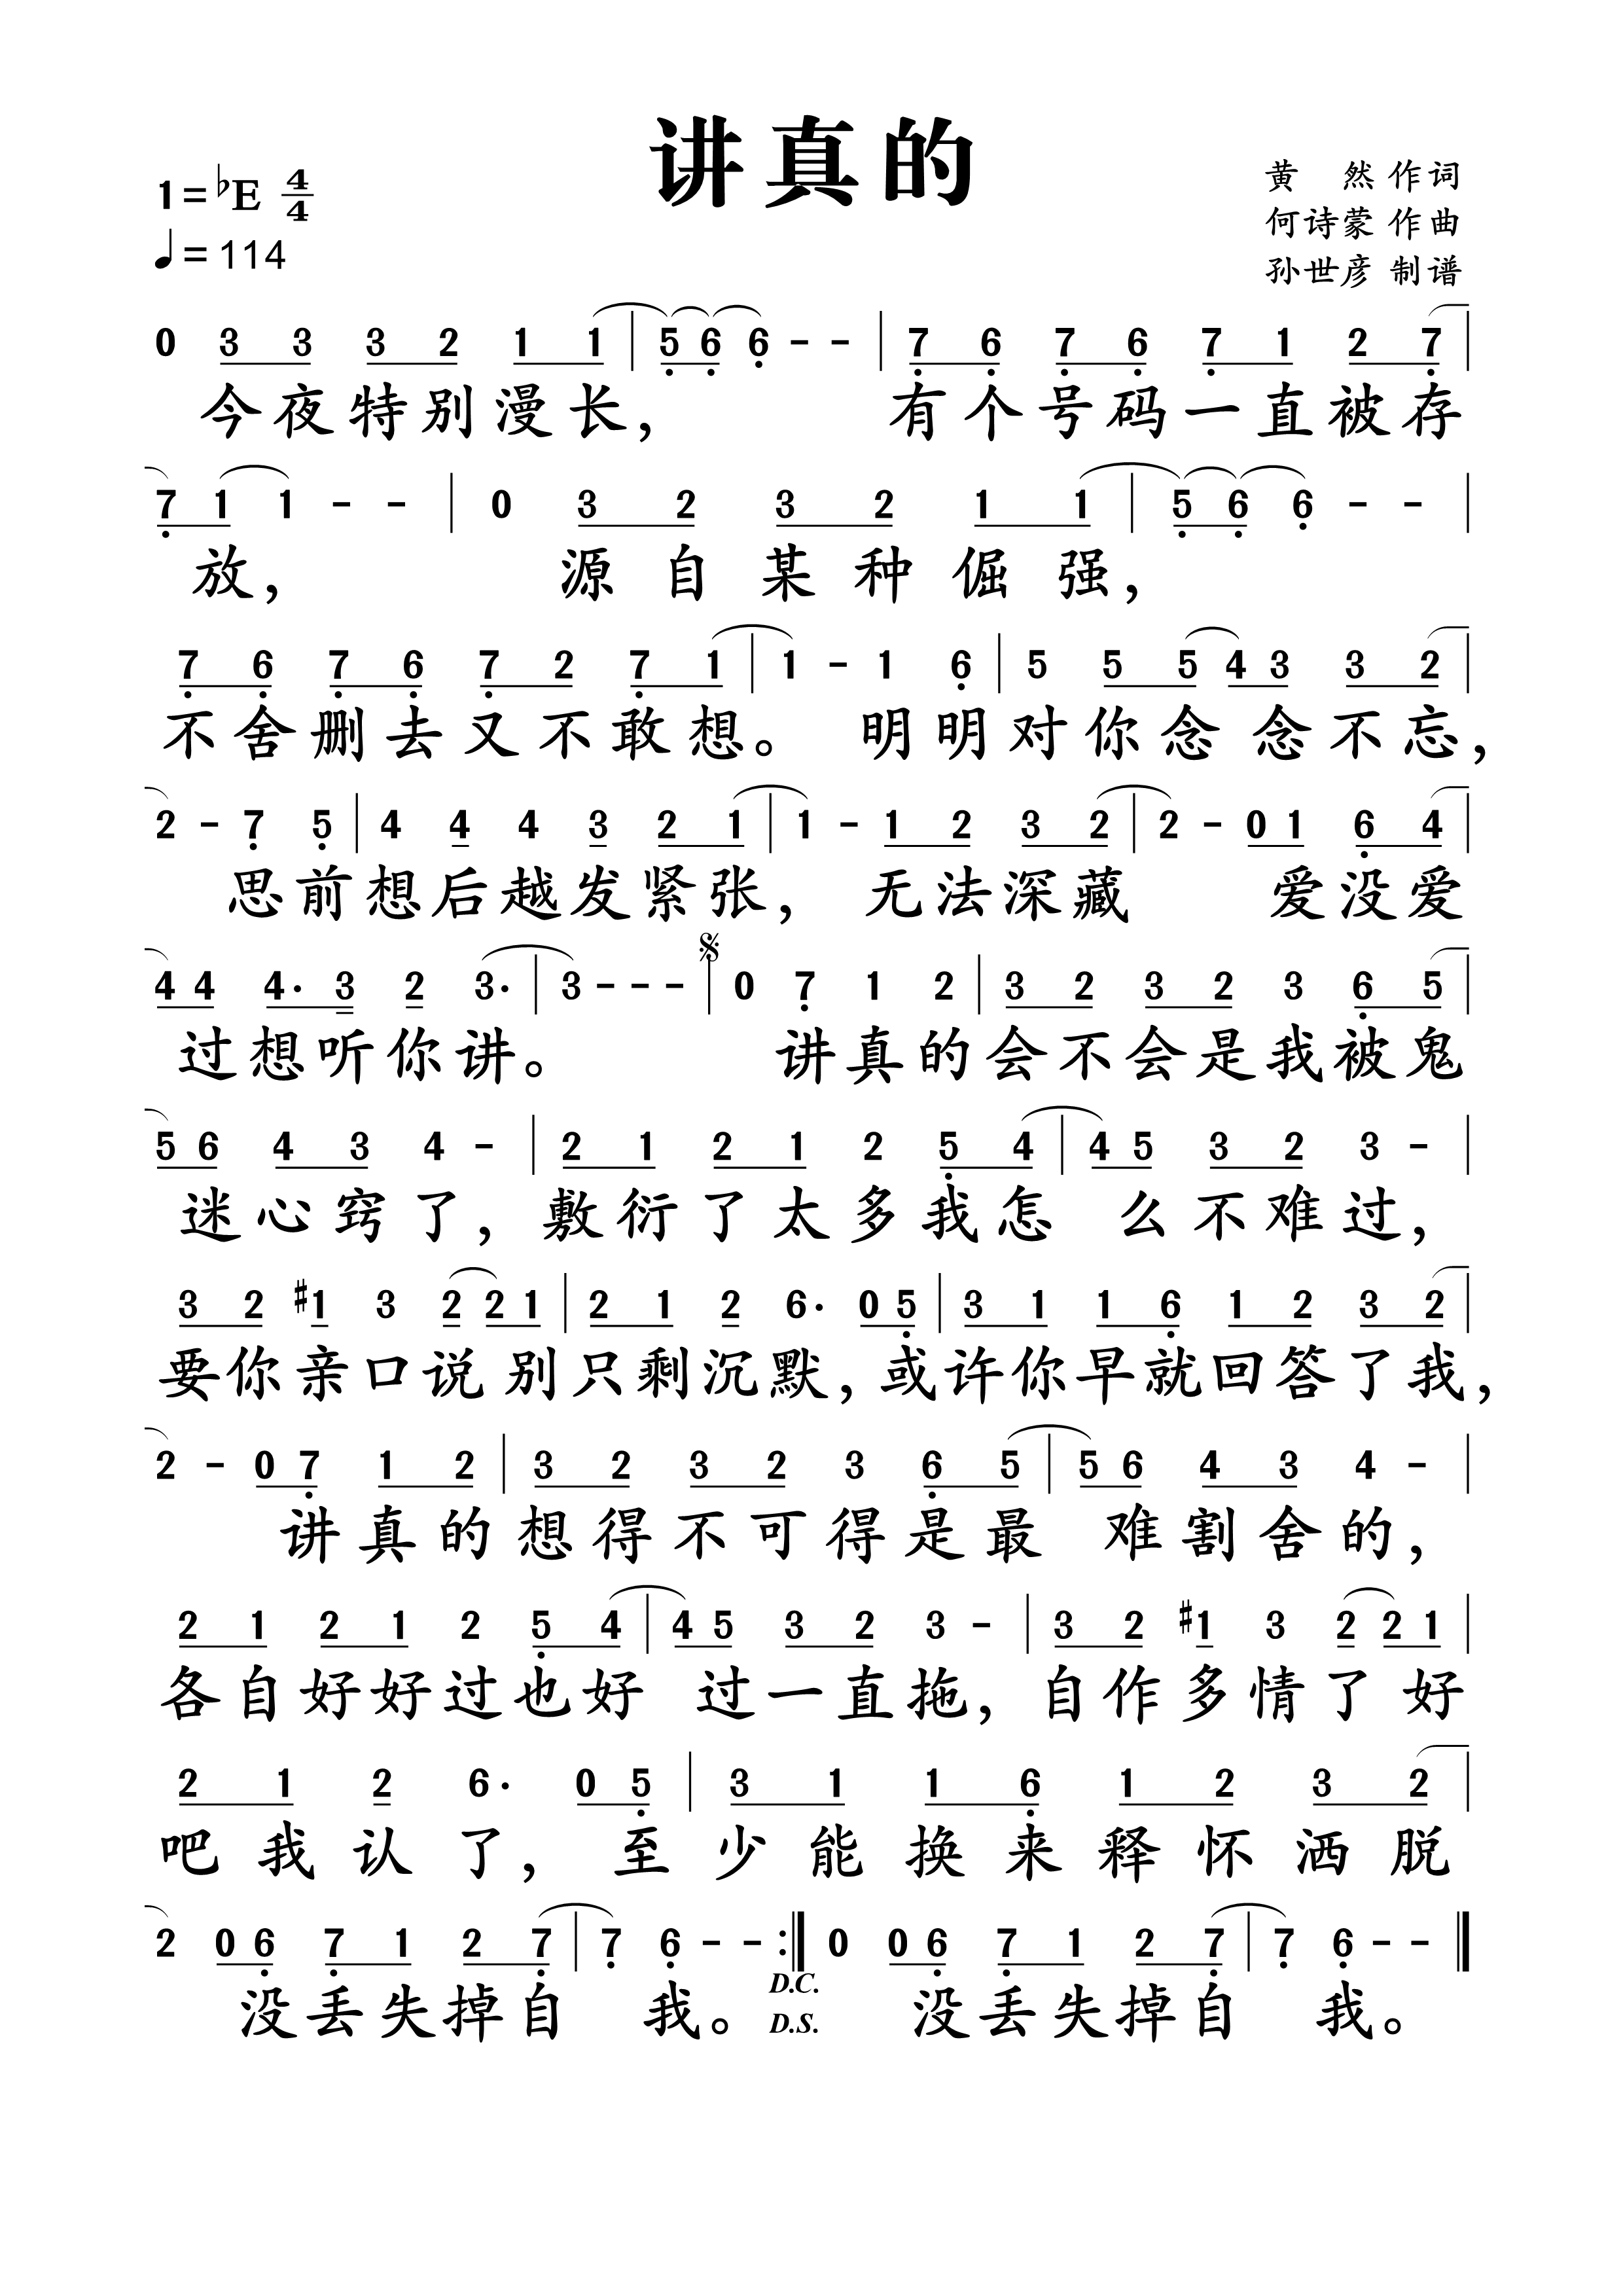 讲真的
1=♭E 4/4
♩=114
黄 然 作词
何诗蒙 作曲
孙世彦 制谱
0 3 3 3 2 1 1 | 5 6 6 - - | 7 6 7 6 7 1 2 7 |
今夜特别漫长， 有个号码一直被存
7 1 1 - - | 0 3 2 3 2 1 1 | 5 6 6 - - |
放， 源自某种倔强，
7 6 7 6 7 2 7 1 | 1 - 1 6 | 5 5 5 4 3 3 2 |
不舍删去又不敢想。 明明对你念念不忘，
2 - 7 5 | 4 4 4 3 2 1 | 1 - 1 2 3 2 | 2 - 0 1 6 4 |
思前想后越发紧张， 无法深藏 爱没爱
4 4 4· 3 2 3· | 3 - - - | 0 7 1 2 | 3 2 3 2 3 6 5 |
过想听你讲。 讲真的会不会是我被鬼
5 6 4 3 4 - | 2 1 2 1 2 5 4 | 4 5 3 2 3 - |
迷心窍了， 敷衍了太多我怎 么不难过，
3 2 #1 3 2 2 1 | 2 1 2 6· 0 5 | 3 1 1 6 1 2 3 2 |
要你亲口说别只剩沉默，或许你早就回答了我，
2 - 0 7 1 2 | 3 2 3 2 3 6 5 | 5 6 4 3 4 - |
讲真的想得不可得是最 难割舍的，
2 1 2 1 2 5 4 | 4 5 3 2 3 - | 3 2 #1 3 2 2 1 |
各自好好过也好 过一直拖，自作多情了好
2 1 2 6· 0 5 | 3 1 1 6 1 2 3 2 |
吧我认了， 至少能换来释怀洒脱
2 0 6 7 1 2 7 | 7 6 - - :‖ 0 0 6 7 1 2 7 | 7 6 - - ‖
D.C.
没丢失掉自 我。 D.S. 没丢失掉自 我。